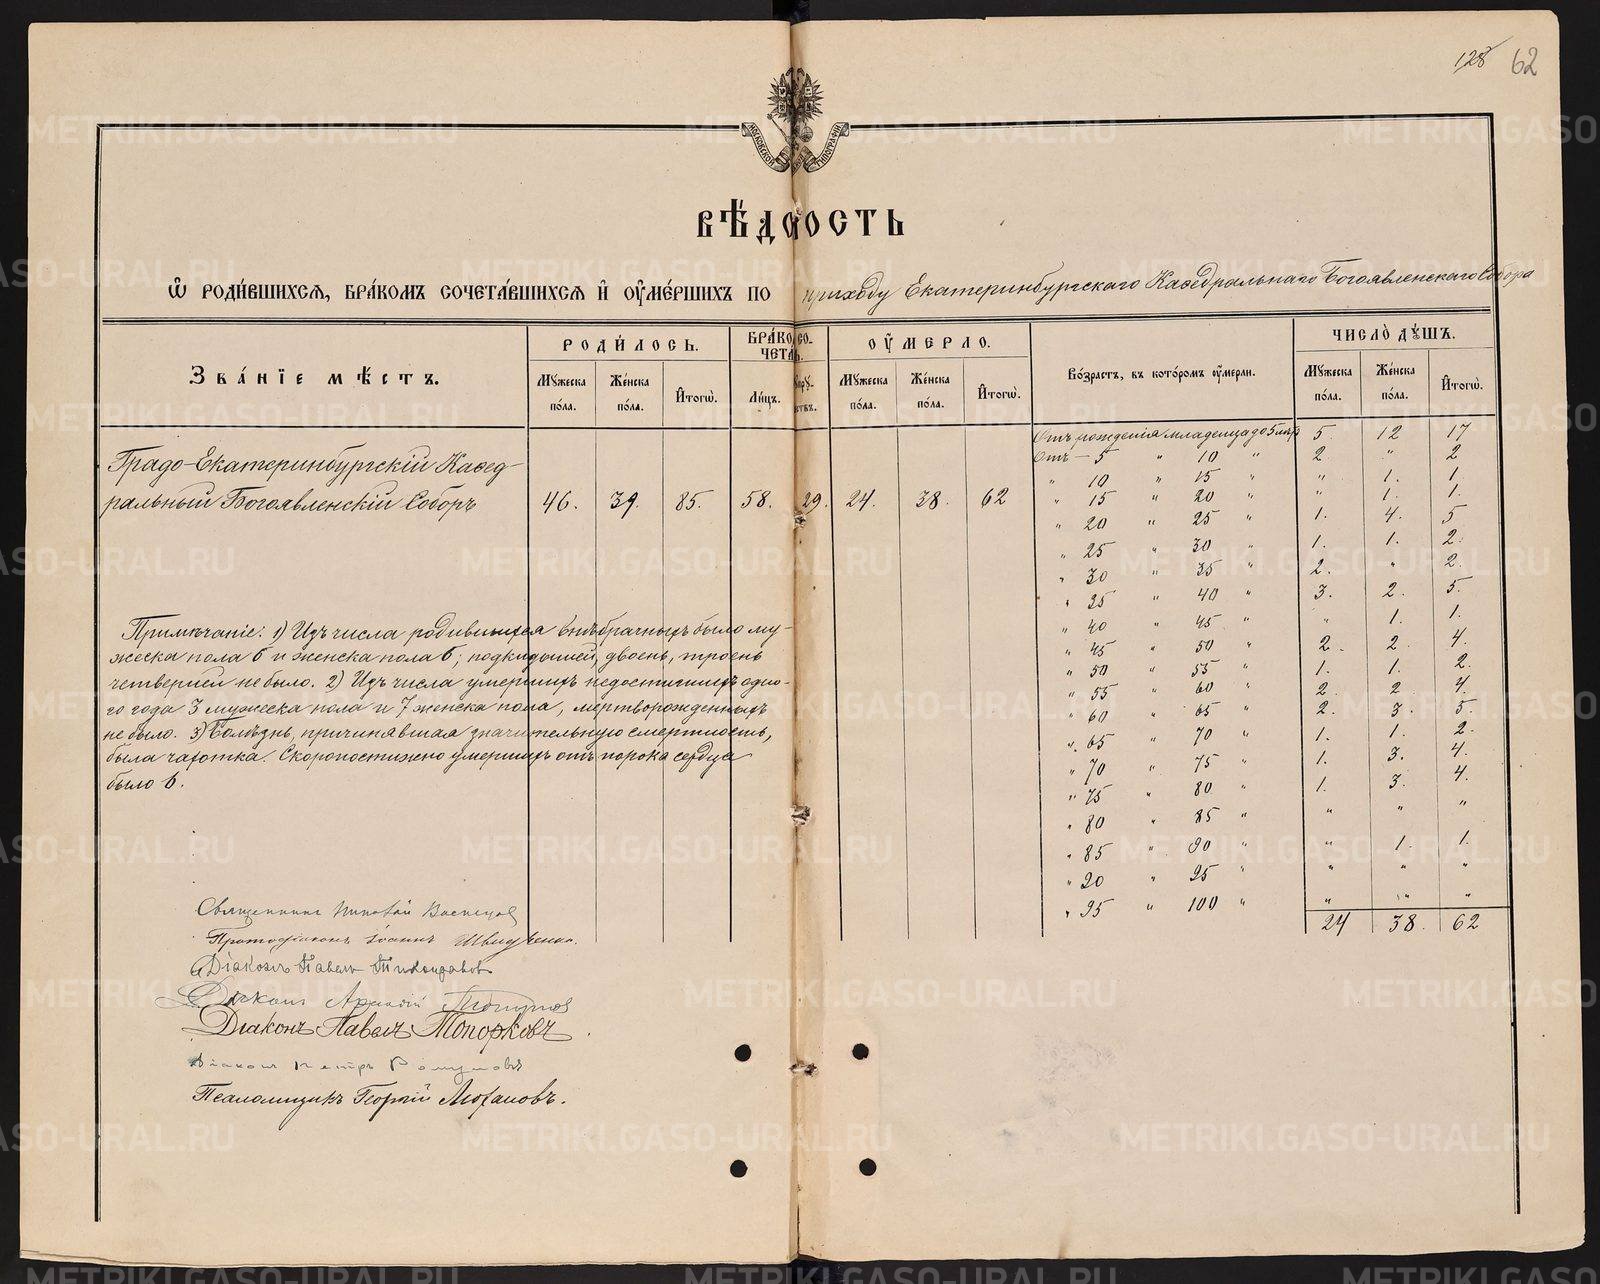 128 62
МОСКОВСКОЙ ТИПОГРАФІИ
ВѢДОМОСТЬ
Ѡ РОДИ́ВШИХСѦ, БРА́КОМЪ СОЧЕТА́ВШИХСѦ И҆ ОУ҆МЕ́РШИХЪ ПО приходу Екатеринбургскаго Каѳедральнаго Богоявленскаго Собора
ЗВА́НІЕ МѢ́СТЪ. РОДИ́ЛОСЬ. БРА́КО СО-ЧЕТА. ОУ҆́МЕРЛО. Во́зрастъ, въ кото́ромъ оу҆мерли. ЧИСЛО̀ ДꙊ́ШЪ.
Мꙋжеска по́ла. Же́нска по́ла. И҆тогѡ̀. Ли́цъ. Мꙋжеска по́ла. Же́нска по́ла. И҆тогѡ̀. Мꙋжеска по́ла. Же́нска по́ла. И҆тогѡ̀.
Градо-Екатеринбургскій Каѳед-
ральный Богоявленскій Соборъ 46. 39. 85. 58. 29. 24. 38. 62
Отъ рожденія младенца до 5 лѣтъ 5. 12 17
Отъ — 5 " 10 " 2 " 2
" 10 " 15 " " 1. 1.
" 15 " 20 " " 1. 1.
" 20 " 25 " 1. 4. 5
" 25 " 30 " 1. 1. 2.
" 30 " 35 " 2. " 2.
" 35 " 40 " 3. 2. 5.
" 40 " 45 " " 1. 1.
" 45 " 50 " 2. 2. 4.
" 50 " 55 " 1. 1. 2.
" 55 " 60 " 2. 2. 4.
" 60 " 65 " 2. 3. 5.
" 65 " 70 " 1. 1. 2.
" 70 " 75 " 1. 3. 4.
" 75 " 80 " 1. 3. 4.
" 80 " 85 " " " "
" 85 " 90 " " 1. 1.
" 90 " 95 " " " "
" 95 " 100 " " " "
24 38. 62
Примѣчаніе: 1) Изъ числа родившихся внѣбрачныхъ было му-
жеска пола 6 и женска пола 6; подкидышей, двоень, троень
четверней не было. 2) Изъ числа умершихъ недостигшихъ одно-
го года 3 мужеска пола и 7 женска пола, мертворожденныхъ
не было. 3) Болѣзнь, причинявшая значительную смертность,
была чахотка. Скоропостижно умершихъ отъ порока сердца
было 6.
Священникъ Николай
Протодіаконъ Іоаннъ
Діаконъ Павелъ
Діаконъ Аркадій
Діаконъ Павелъ Топорковъ.
Діаконъ Петръ
Псаломщикъ Георгій
METRIKI.GASO-URAL.RU